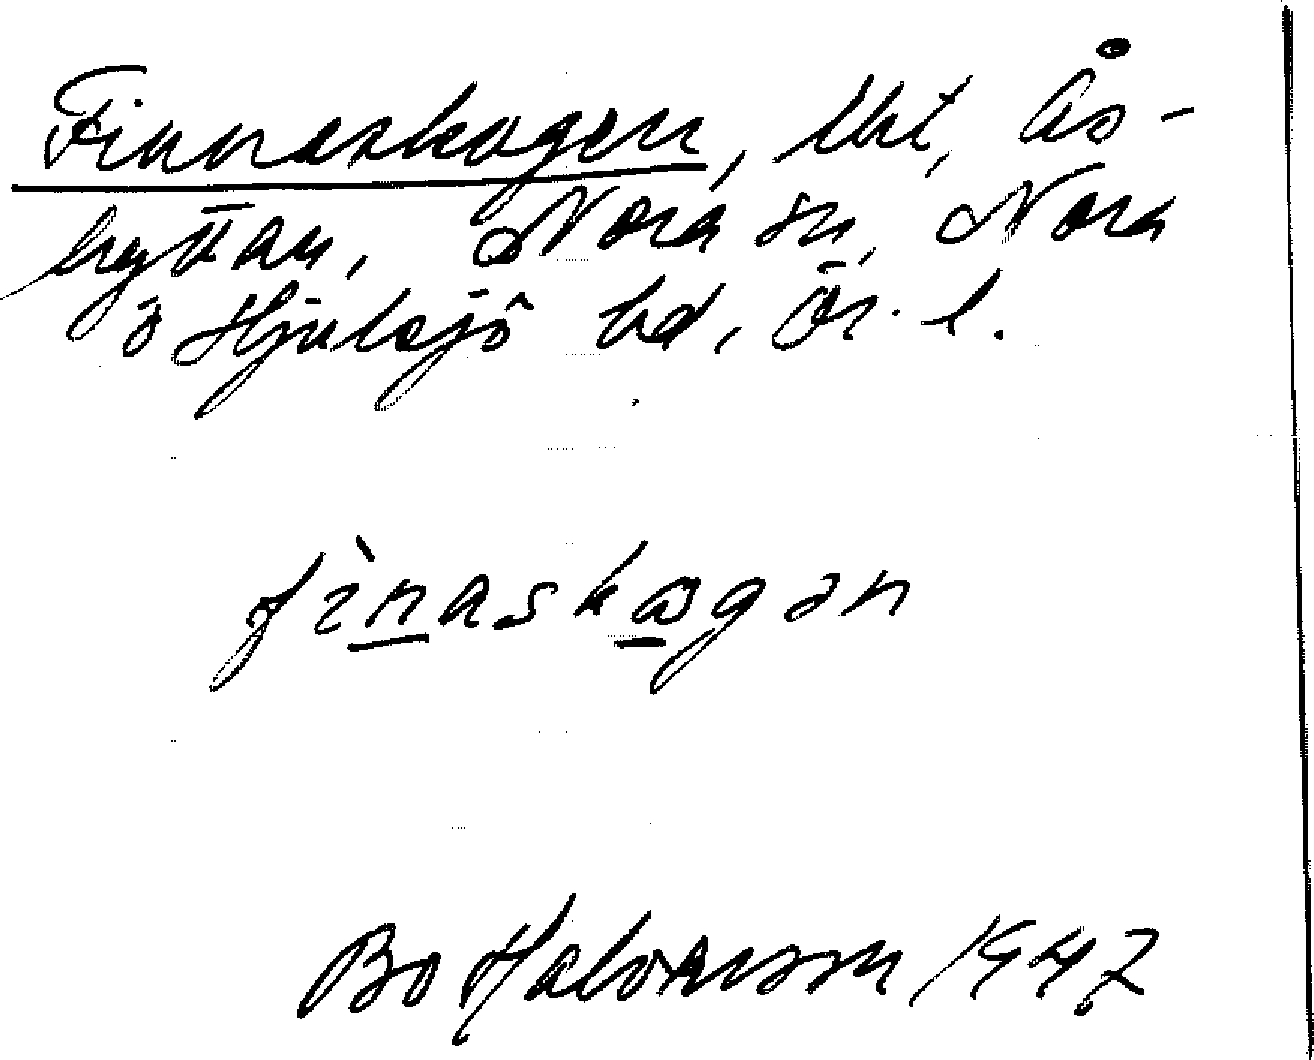 Finnaskogen, lht, Ås-
hyttan, Nora sn, Nora
o Hjulsjö bd, Ör. l.
fìnaskogən
Bo Halvarsson 1947